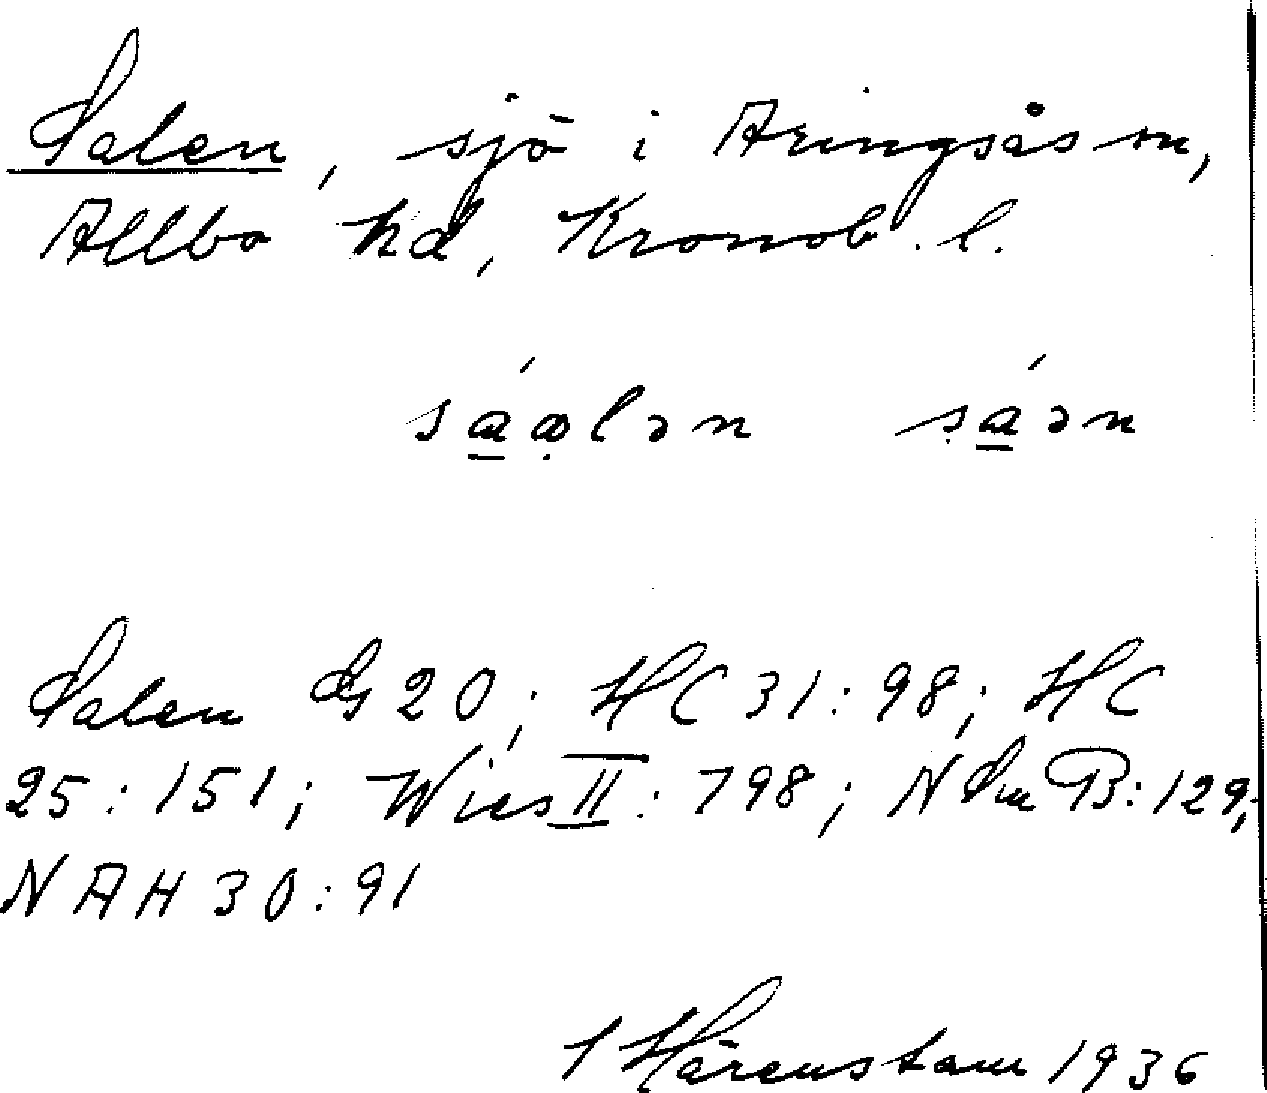 Salen, sjö i Aringsås sn,
Allbo hd, Kronob. l.
Salen G 20; HC 31:98; HC
25:151; Wies II: 798; N Sm B: 129;
NAH 30:91
Härenstam 1936